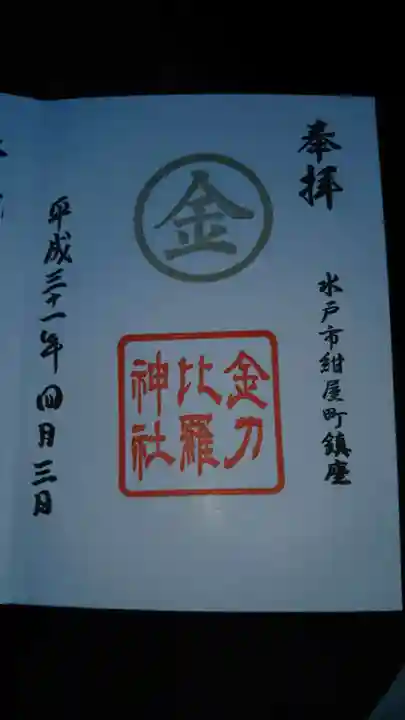 奉拝
水戸市紺屋町鎮座
金
金刀
比羅
神社
平成三十一年四月三日